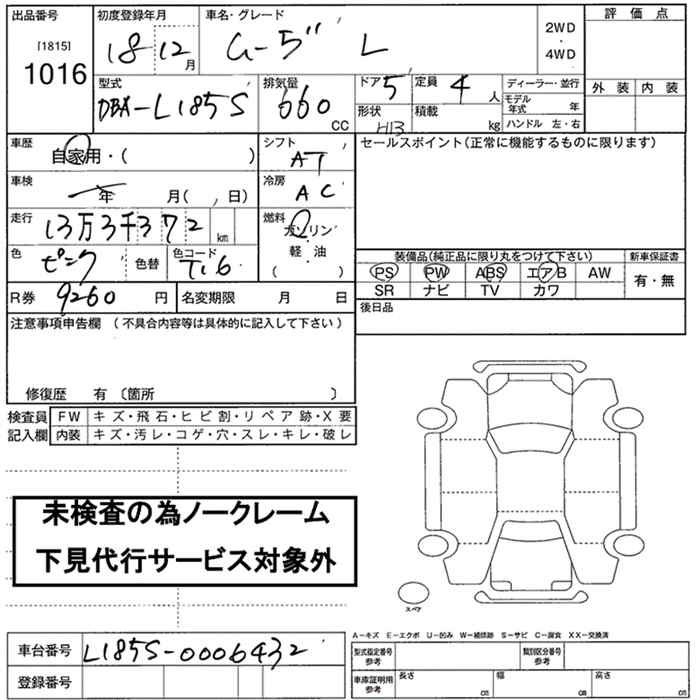 出品番号 初度登録年月 車名・グレード 評価点
[1815] 18 12 月 ムーヴ L 2WD
・
1016 4WD
型式 排気量 ドア 5 定員 4 人 ディーラー・並行 外装 内装
DBA-L185S 660 CC 形状 積載 kg モデル年式 年
ハンドル 左・右
車歴 自家用・( ) シフト AT セールスポイント(正常に機能するものに限ります)
車検 年 月( , 日) 冷房 AC
走行 13万3千372 km 燃料 ガソリン
・
色 ピンク 色替 色コード T16 軽・油
( )
装備品(純正品に限り丸をつけて下さい) 新車保証書
PS PW ABS エアB AW 有・無
SR ナビ TV カワ
R券 9260 円 名変期限 月 日 後日品
注意事項申告欄 (不具合内容等は具体的に記入して下さい)
修復歴 有 〔箇所 〕
検査員 FW キズ・飛石・ヒビ割・リペア跡・X要
記入欄 内装 キズ・汚レ・コゲ・穴・スレ・キレ・破レ
未検査の為ノークレーム
下見代行サービス対象外
スペア
A-キズ E-エクボ U-凹み W-補修跡 S-サビ C-腐食 XX-交換済
車台番号 L185S-0006432 型式指定番号 参考 類別区分番号 参考
登録番号 車庫証明用 参考 長さ cm 幅 cm 高さ cm